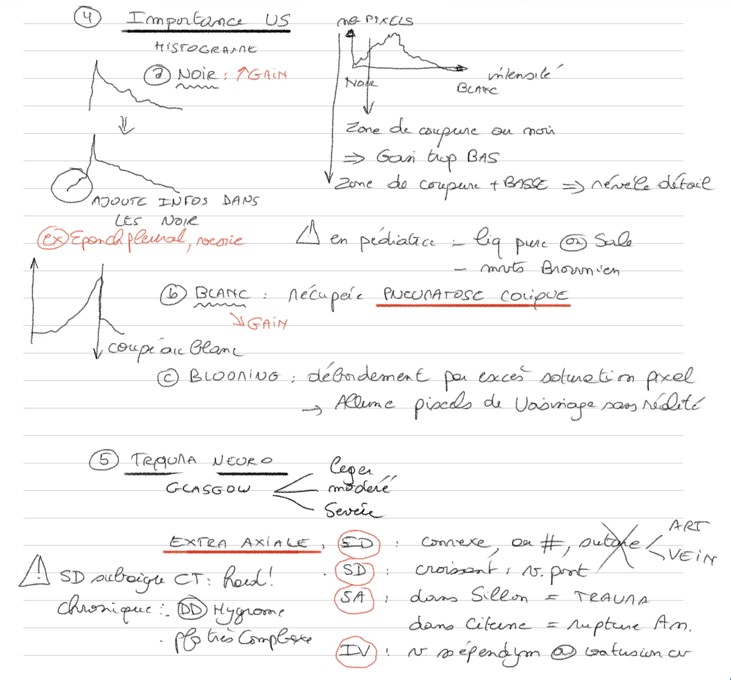 4 Importance US
HISTOGRAMME
nb PIXELS
a NOIR : ↑GAIN
NOIR
intensité
BLANC
Zone de coupure au noir
⇒ Gain trop BAS
Zone de coupure + BASSE ⇒ révèle détail
AJOUTE INFOS DANS
LES NOIR
ex Epanch pleural, vessie
⚠ en pédiatrie - liq pure ou Sale
- mvts Brownien
b BLANC : récupère PNEUMATOSE COLIQUE
↘GAIN
coupé au blanc
c BLOOMING : débordement par excès saturation pixel
→ Allume pixels de Voisinage sans réalité
5 TRAUMA NEURO
GLASGOW
léger
modéré
Sevère
EXTRA AXIALE : ED : convexe, ou #, suture
ART
VEIN
⚠ SD subaigu CT : hard!
SD : croissant, v. pont
chronique : DD Hygrome
SA : dans Sillon = TRAUMA
dans Citerne = rupture An.
. pfs très Complexe
IV : v ss épendym